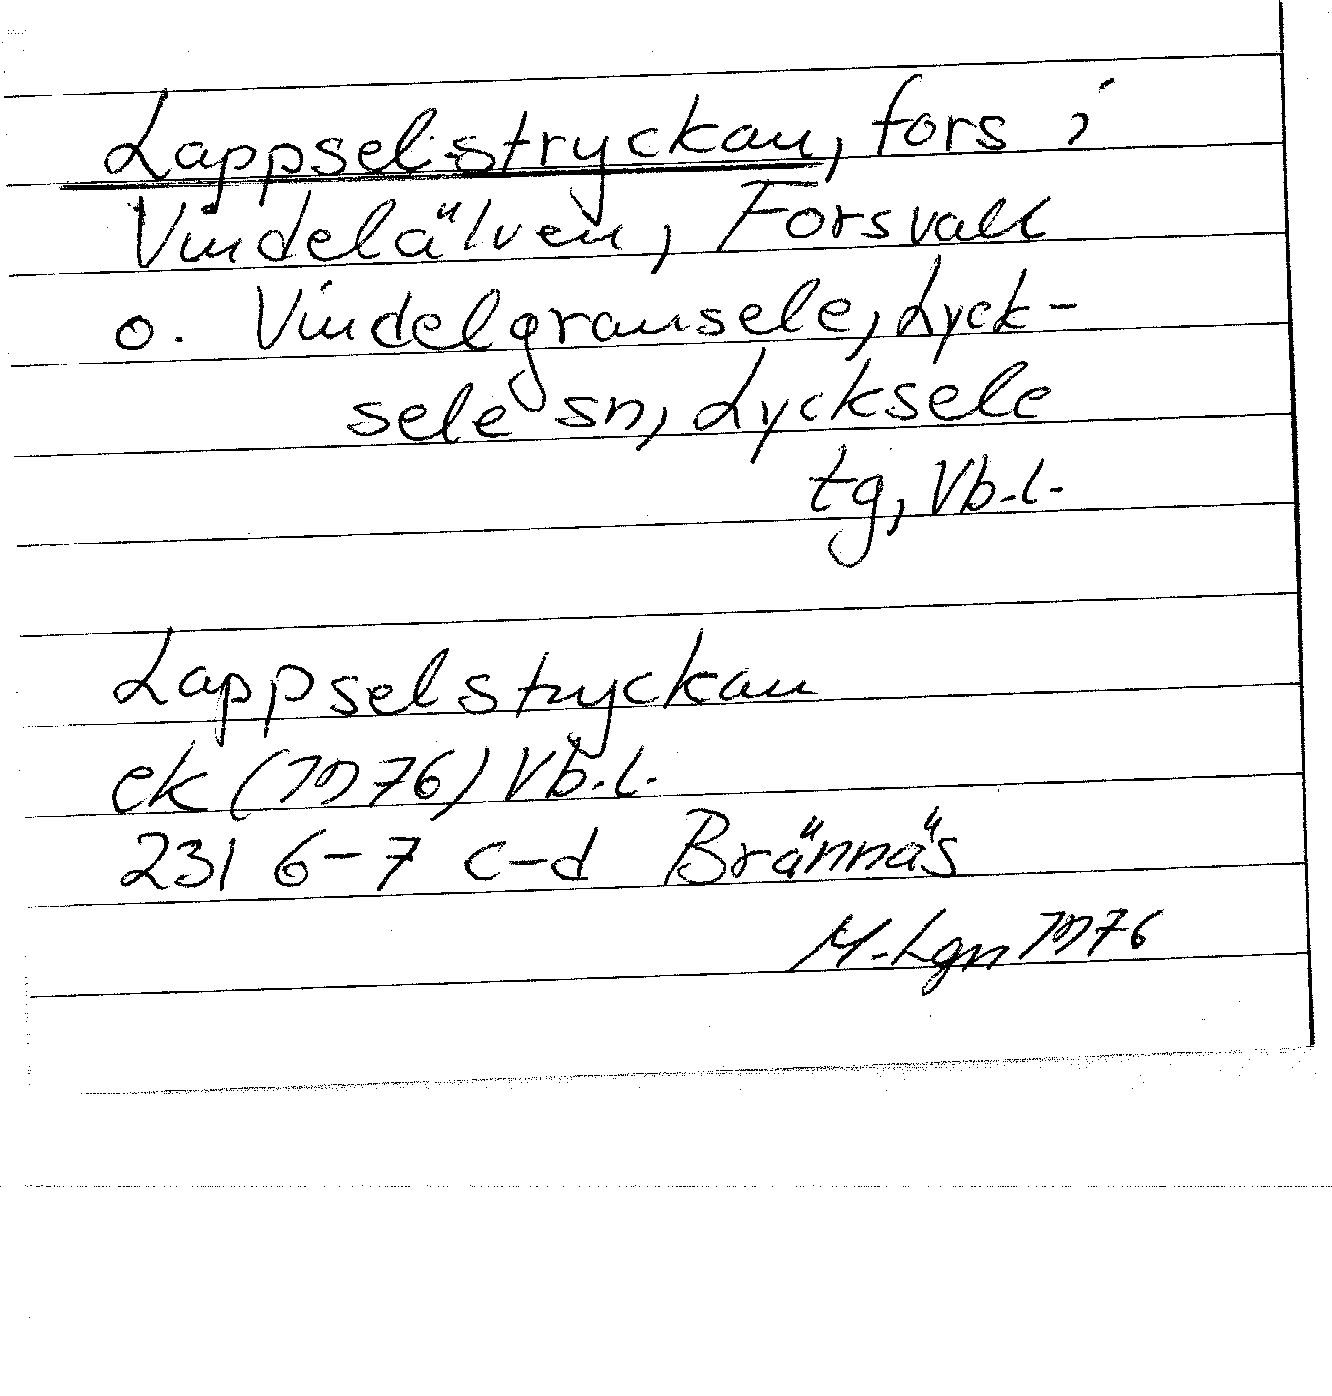 Lappselstryckan, fors i
Vindelälven, Forsvall
o. Vindelgransele, Lyck-
sele sn, Lycksele
tg, Vb.l.
Lappselstryckan
ek (1976) Vb.l.
231 6-7 c-d Brännäs
M. Lgn 1976